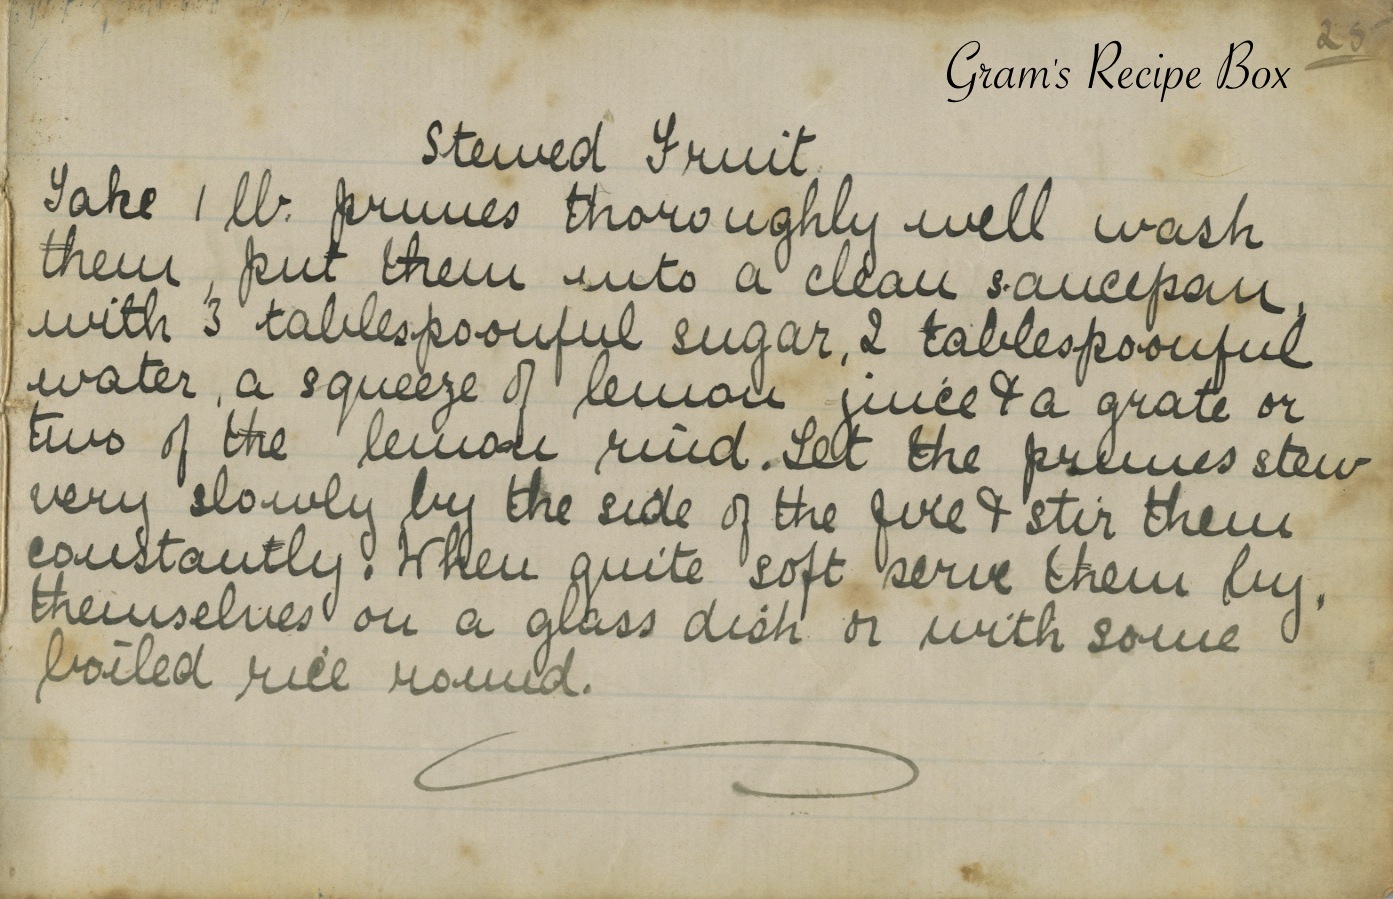 25
Gram's Recipe Box
Stewed Fruit
Take 1 lb. prunes thoroughly well wash
them, put them into a clean saucepan,
with 3 tablespoonful sugar, 2 tablespoonful
water, a squeeze of lemon juice & a grate or
two of the lemon rind. Let the prunes stew
very slowly by the side of the fire & stir them
constantly. When quite soft serve them by,
themselves on a glass dish or with some
boiled rice round.